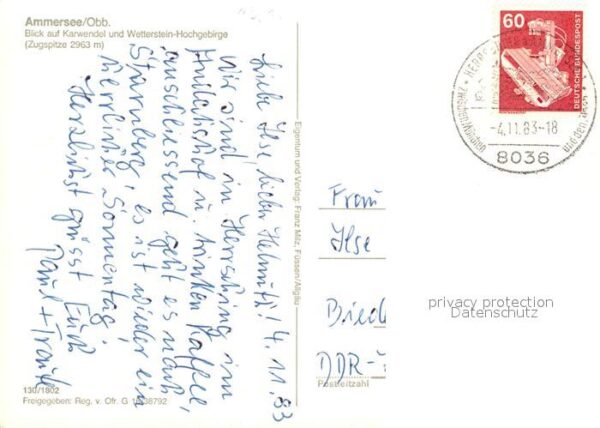 Ammersee/Obb.
Blick auf Karwendel und Wetterstein-Hochgebirge
(Zugspitze 2963 m)
Liebe Ilse, lieber Helmut! 4.11.83
Wir sind in Herrsching im
u. trinken Kaffee,
anschliessend geht es nach
Starnberg, es ist wieder ein
herrlicher Sonnentag,
Herzlichst grüsst Euch
Paul + Traute
Eigentum und Verlag: Franz Milz, Füssen/Allgäu
130/1802
Freigegeben: Reg. v. Ofr. G
60
DEUTSCHE BUNDESPOST
-4.11.83-18
8036
Frau
Ilse
DDR-
Postleitzahl
privacy protection
Datenschutz